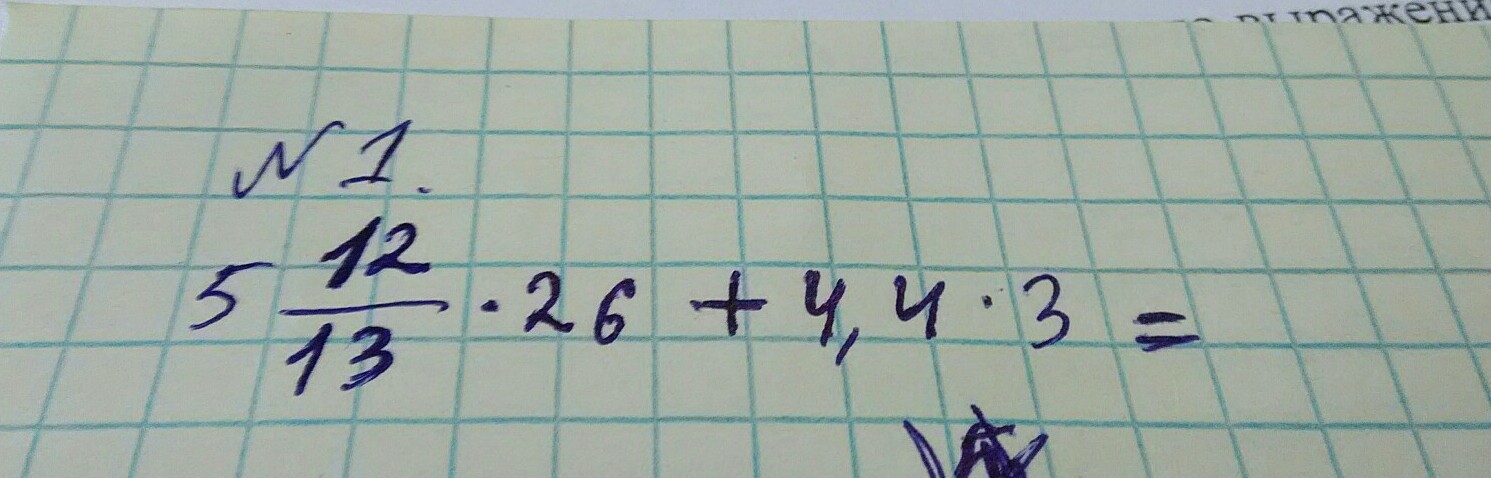 выражени
№ 1.
5 12/13 · 26 + 4,4 · 3 =